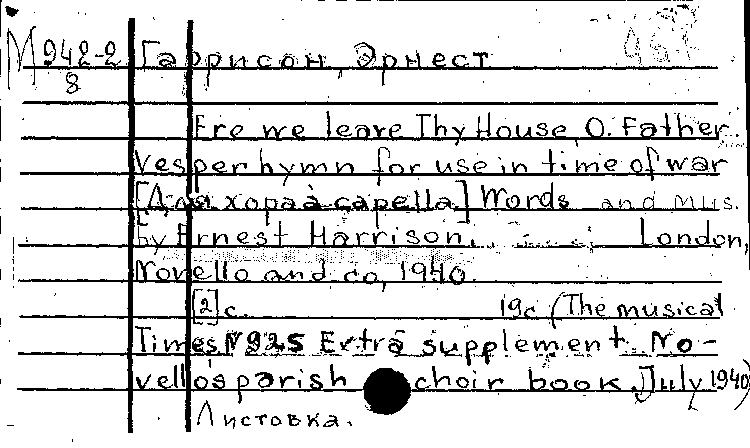 М 942-2 Гаррисон, Эрнест
8
Ere we leave Thy House, O. Father.
Vesper hymn for use in time of war
[Для хора à capella] Words and mus.
by Ernest Harrison. London,
Novello and co, 1940.
[2] с. 19с (The musical
Times № 925 Extra supplement. No-
vello's parish choir book, July 1940)
Листовка.